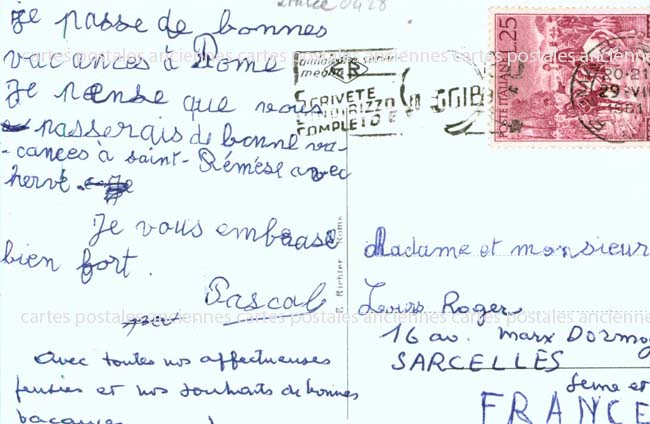 je passe de bonnes
vacances à Rome
Je pense que vous
passerais de bonne va-
-cances à saint-Rémèse avec
hervé.
Je vous embrasse
bien fort.
Pascal
Avec toutes nos affectueuses
pensées et nos souhaits de bonnes
vacances
cartes postales anciennes cartes postales anciennes cartes postales anciennes
SCRIVETE
INDIRIZZO
COMPLETO
POSTE ITALIANE L.25
20-21
29 VI
1961
R. Richter Roma
Madame et monsieur
Louis Roger
16 av. Marx Dormoy
SARCELLES
Seine et
FRANCE
cartes postales anciennes cartes postales anciennes cartes postales anciennes